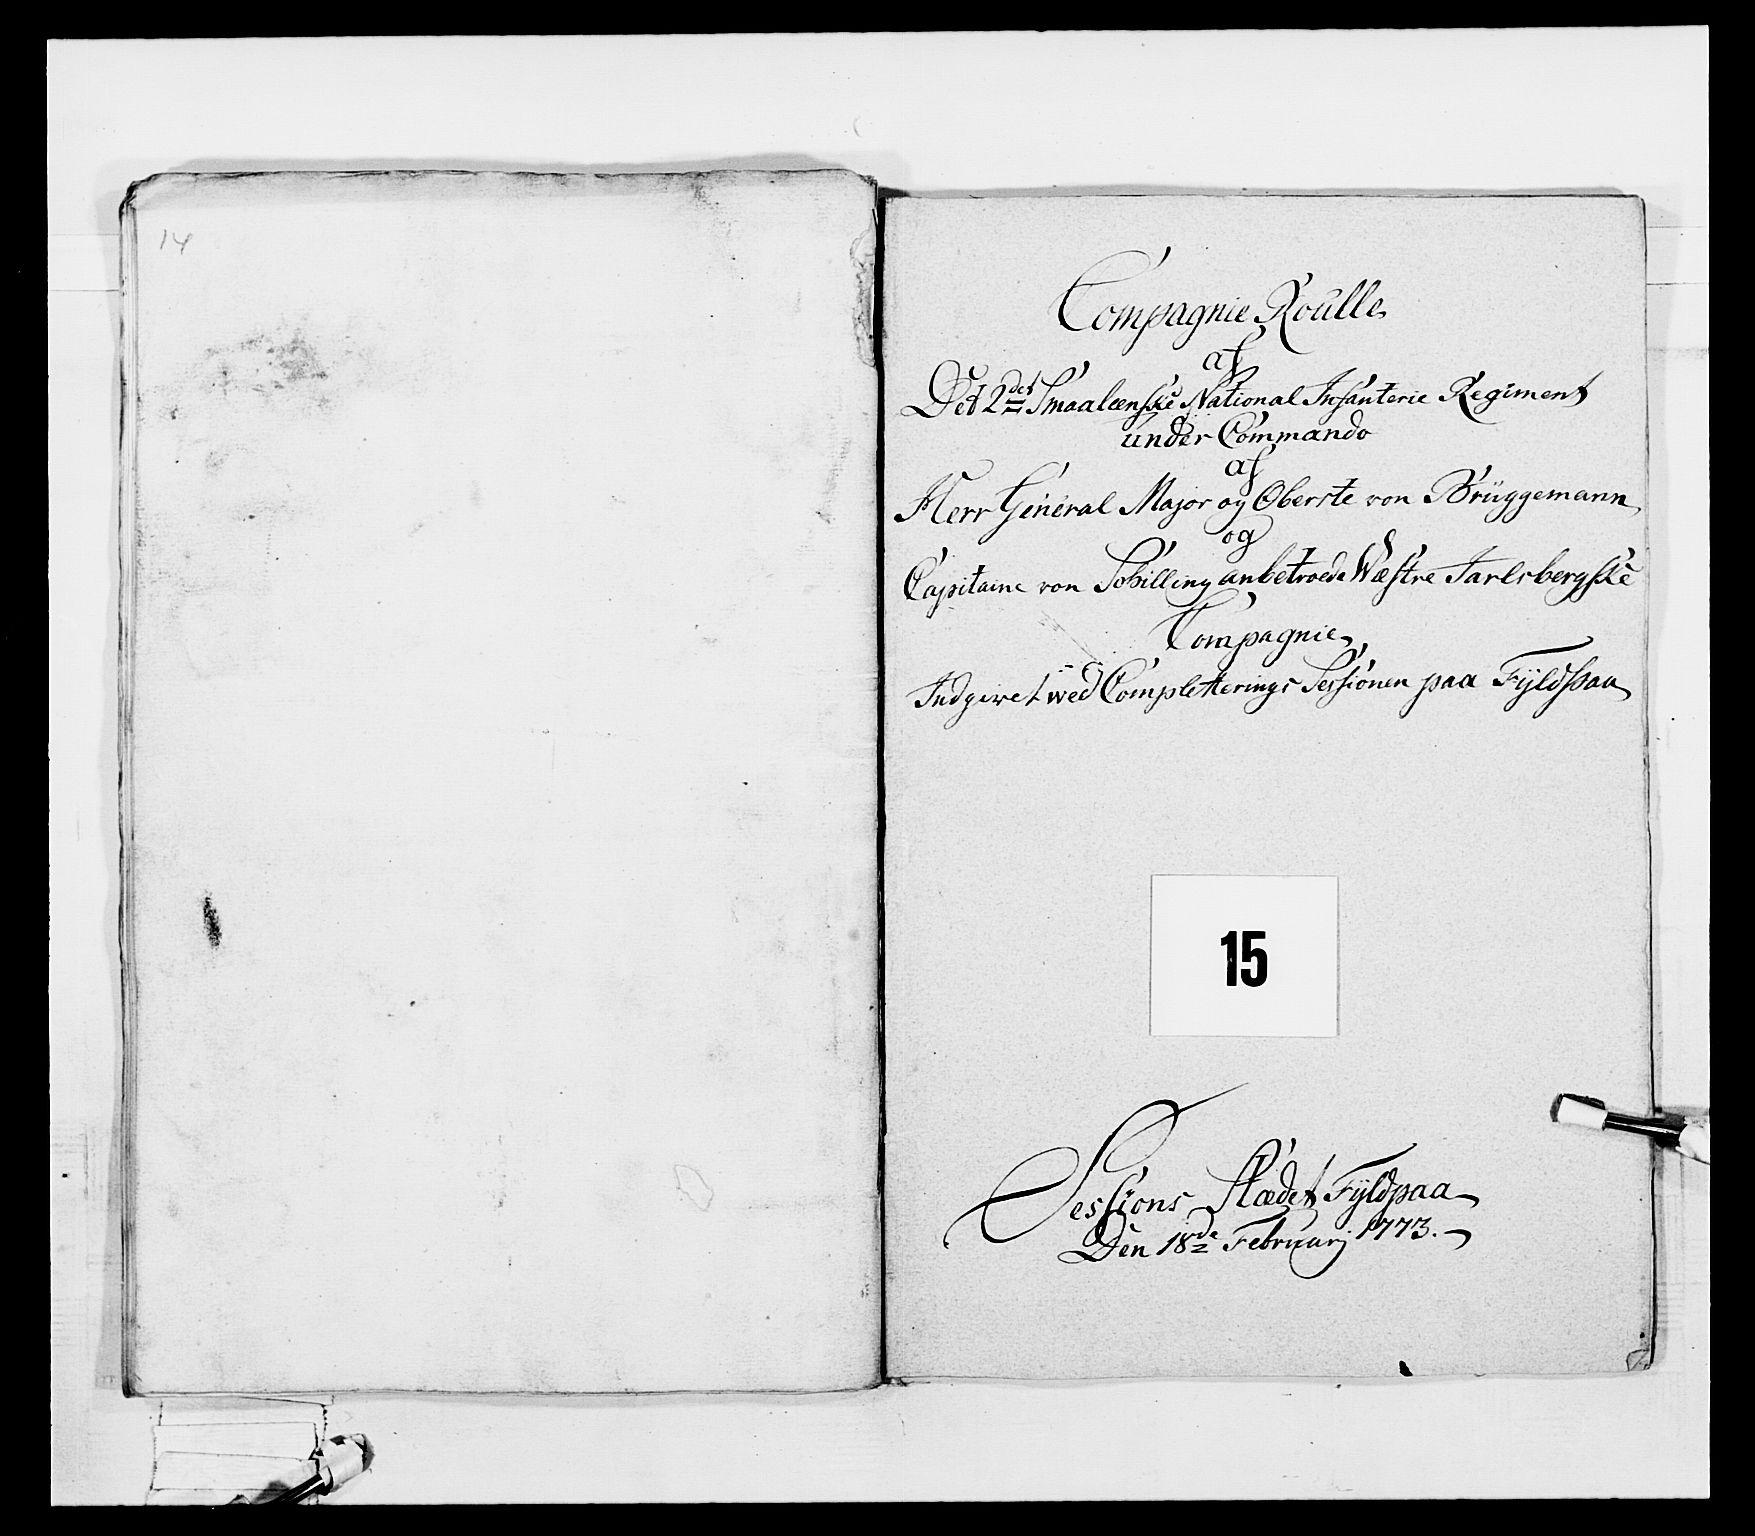 14
Compagnie Roulle
af
Det 2det Smaaleenske National Infanterie Regiment
under Commando
af
Herr General Major og Oberste von Brüggemann
og
Capitaine von Schilling anbetroede Wæstre Jarlsbergske
Compagnie
Indgivet wed Completterings Sessionen paa Fÿldpaa
15
Sessions Stædet Fÿldpaa
Den 18de Februarj 1773.